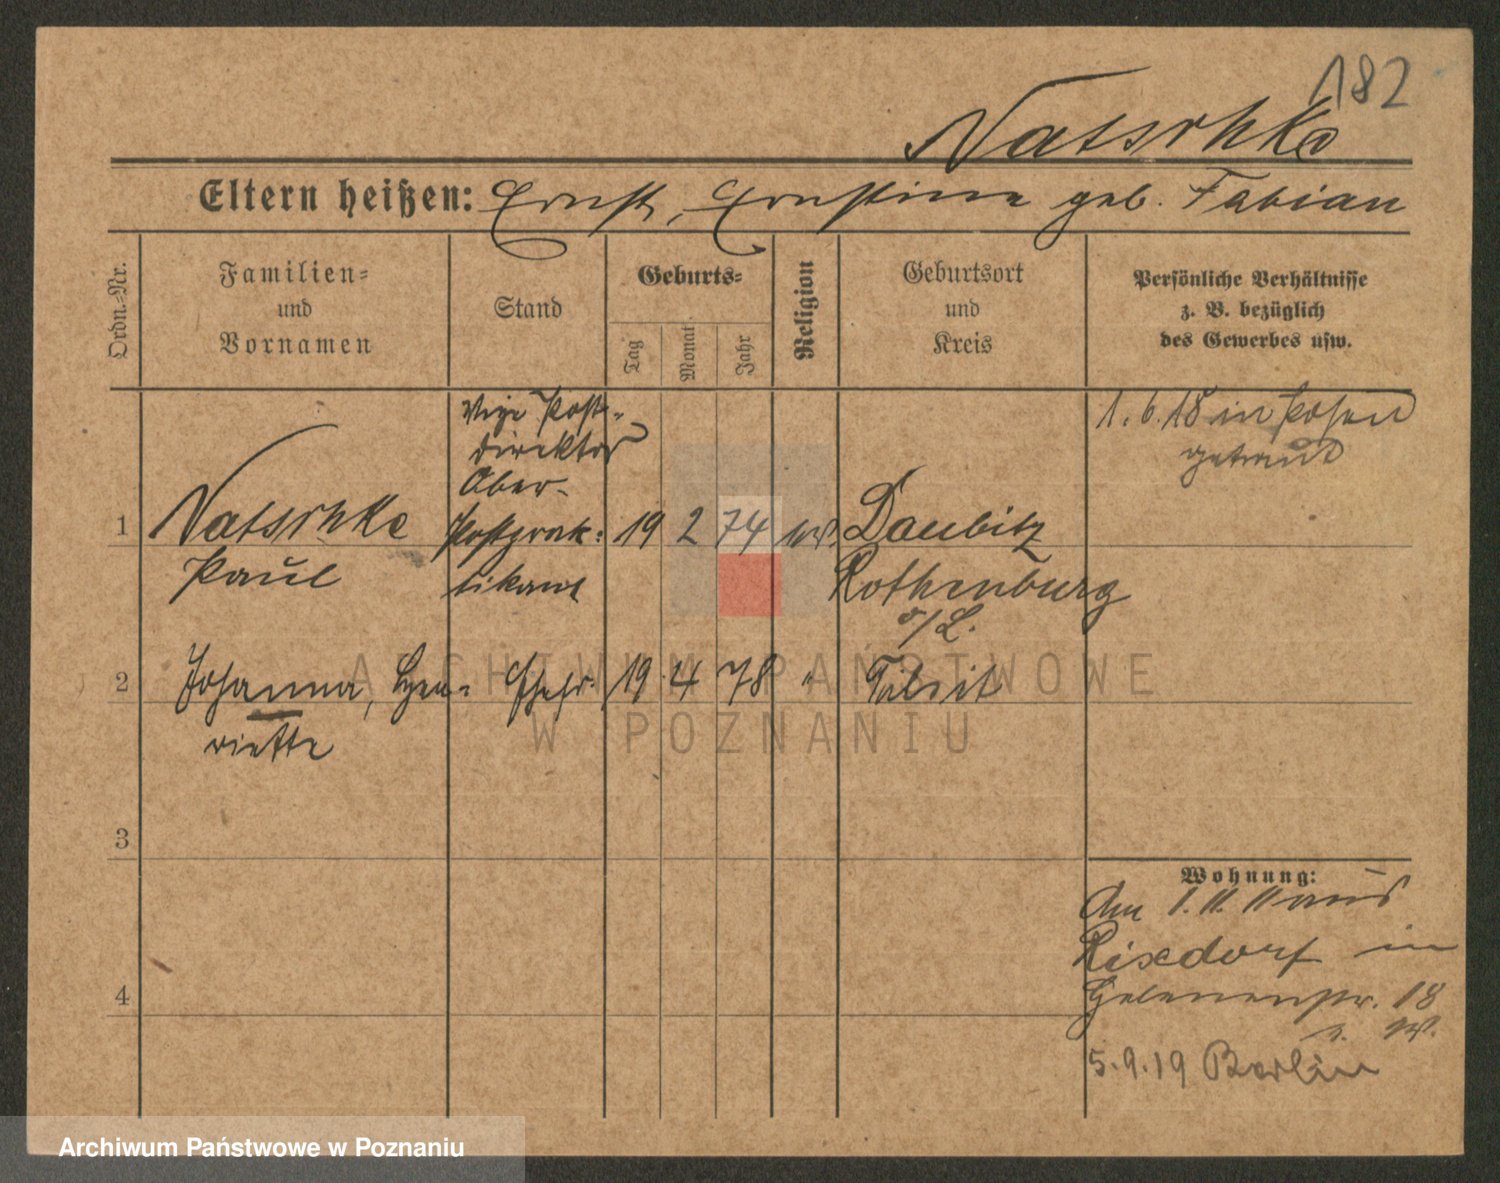 182
Natschke
Eltern heißen: Ernst, Ernstine geb. Fabian
Ordn.-Nr.
Familien-
und
Vornamen
Stand
Geburts-
Tag
Monat
Jahr
Religion
Geburtsort
und
Kreis
Persönliche Verhältnisse
z. B. bezüglich
des Gewerbes usw.
Vize Post-
direktor
Ober-
1 Natschke Postprak- 19 2 74 ev. Daubitz
Paul tikant Rothenburg
o/L.
1.6.18 in Posen
getraut
2 Johanna, Hen- Ehefr. 19 4 78 " Tilsit
riette
3
4
Wohnung:
Am 1. 11. 11 aus
Rixdorf in
Helenenstr. 18
5.9.19 Berlin
ARCHIWUM PAŃSTWOWE
W POZNANIU
Archiwum Państwowe w Poznaniu